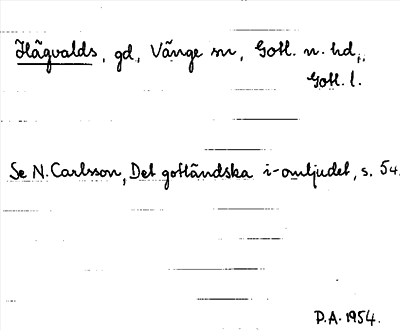 Hägvalds, gd, Vänge sn, Gotl. n. hd,
Gotl. l.
Se N. Carlsson, Det gotländska i-omljudet, s. 54.
D.A. 1954.